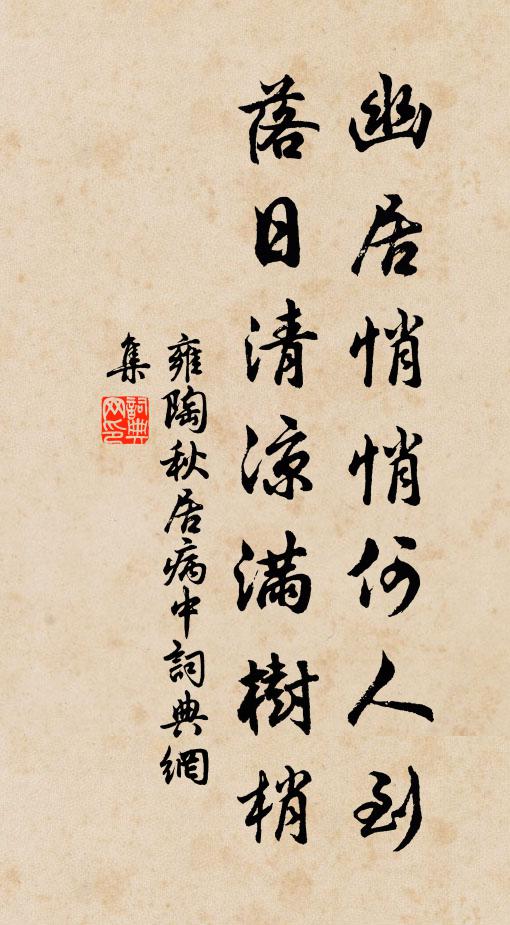 幽居悄悄何人到
落日清涼滿樹梢
雍陶秋居病中詞典網
集
詞典
网印